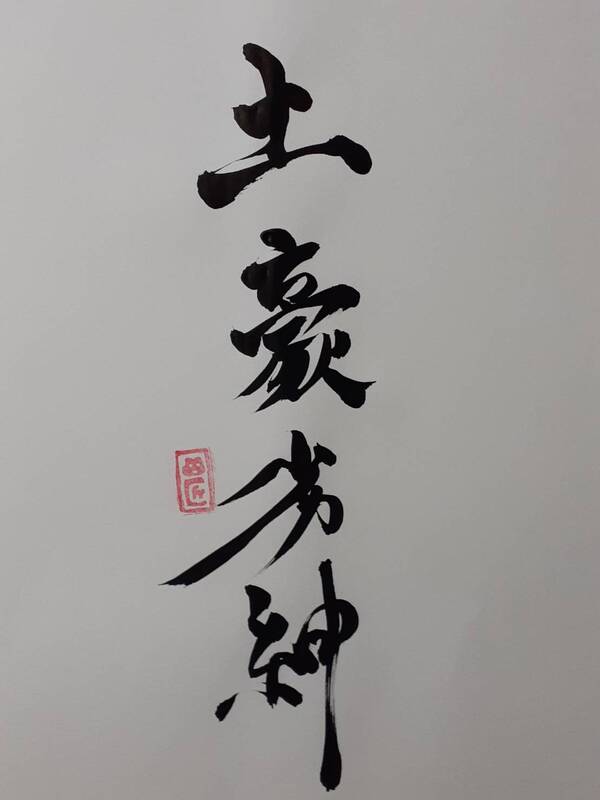 土豪劣紳